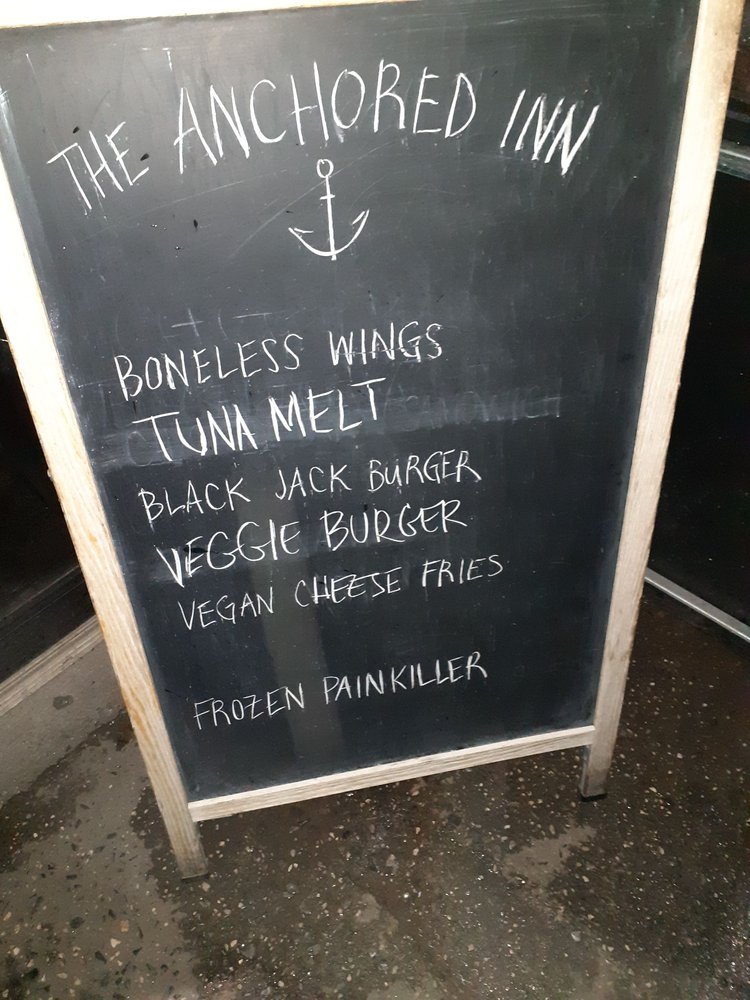 THE ANCHORED INN
BONELESS WINGS
TUNA MELT
BLACK JACK BURGER
VEGGIE BURGER
VEGAN CHEESE FRIES
FROZEN PAINKILLER